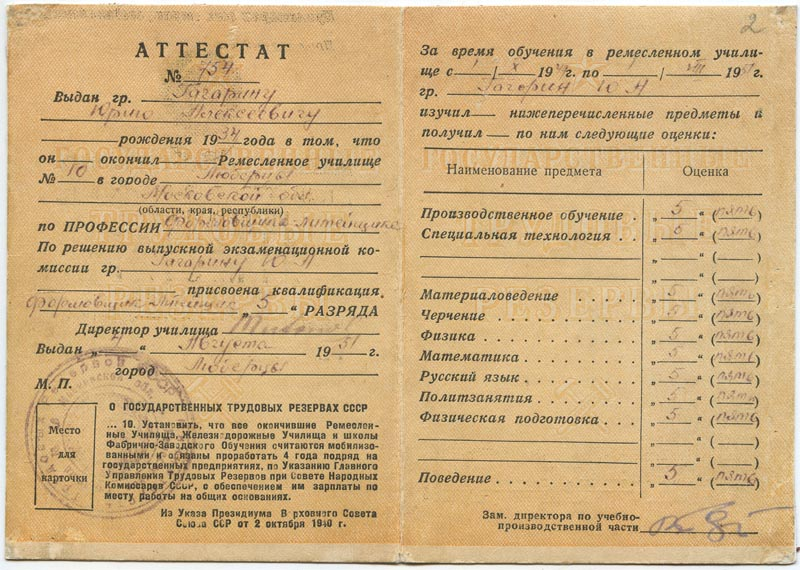 АТТЕСТАТ
№ 754
Выдан гр. Гагарину
Юрию Алексеевичу
рождения 1934 года в том, что
он окончил Ремесленное училище
№ 10 в городе Люберцы
Московской обл.
(области, края, республики)
по ПРОФЕССИИ формовщика-литейщика
По решению выпускной экзаменационной ко-
миссии гр. Гагарину Ю А
присвоена квалификация
формовщик-литейщик „ 5 “ РАЗРЯДА
Директор училища
Выдан „ “ Августа 1951 г.
город Люберцы
М. П.
Место
для
карточки
О ГОСУДАРСТВЕННЫХ ТРУДОВЫХ РЕЗЕРВАХ СССР
... 10. Установить, что все окончившие Ремеслен-
ные Училища, Железнодорожные Училища и школы
Фабрично-Заводского Обучения считаются мобилизо-
ванными и обязаны проработать 4 года подряд на
государственных предприятиях, по Указанию Главного
Управления Трудовых Резервов при Совете Народных
Комиссаров СССР, с обеспечением им зарплаты по
месту работы на общих основаниях.
Из Указа Президиума Верховного Совета
Союза ССР от 2 октября 1940 г.
2
За время обучения в ремесленном учили-
ще с 1/X 1949г. по /VIII 1951г.
гр. Гагарин Ю А
изучил нижеперечисленные предметы и
получил по ним следующие оценки:
Наименование предмета Оценка
Производственное обучение . . „ 5 “ (пять)
Специальная технология . . . . „ 5 “ (пять)
„ “ ( )
„ “ ( )
Материаловедение . . . . . . . „ 5 “ (пять)
Черчение . . . . . . . . . . . „ 5 “ (пять)
Физика . . . . . . . . . . . . „ 5 “ (пять)
Математика . . . . . . . . . . „ 5 “ (пять)
Русский язык . . . . . . . . . „ 5 “ (пять)
Политзанятия . . . . . . . . . „ 5 “ (пять)
Физическая подготовка . . . . . „ 5 “ (пять)
„ “ ( )
„ “ ( )
Поведение . . . . . . . . . . . „ 5 “ (пять)
Зам. директора по учебно-
производственной части